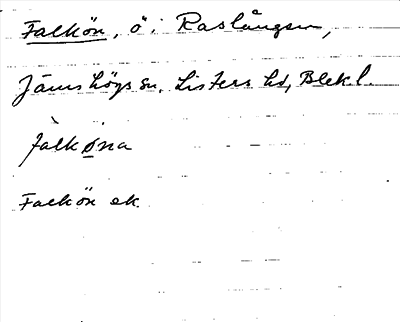 Falkön, ö i Raslången,
Jämshögs sn, Listers hd, Blek.l.
fàlkøna
Falkön ek.